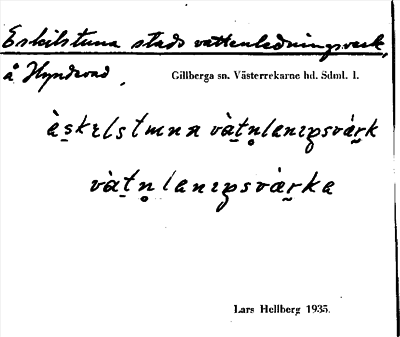 Eskilstuna stads vattenledningsverk,
å Hyndevad. Gillberga sn. Västerrekarne hd. Sdml. 1.
àskɩlstuna vàtn̥lanɩŋsvárk
vàtn̥lanɩŋsvárka
Lars Hellberg 1935.